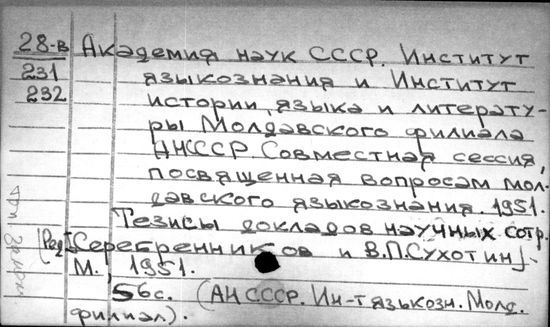 28-в Академия наук СССР. Институт
231 языкознания и Институт
232 истории, языка и литерату-
ры Молдавского филиала
АНСССР. Совместная сессия,
посвященная вопросам мол-
давского языкознания. 1951.
Тезисы докладов научных сотр.
[Ред. Серебренников и В.П.Сухотин].-
М., 1951.
56с. (АН СССР. Ин-т языкозн. Молд.
филиал).